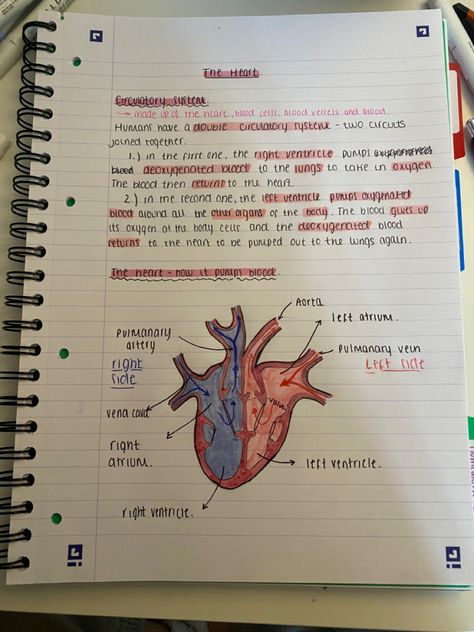 The Heart.
Circulatory system.
→ made up of the heart, blood cells, blood vessels and blood.
Humans have a double circulatory system - two circuits
joined together.
1.) in the first one, the right ventricle pumps
deoxygenated blood to the lungs to take in oxygen.
The blood then returns to the heart.
2.) in the second one, the left ventricle pumps oxygenated
blood around all the other organs of the body. The blood gives up
its oxygen at the body cells and the deoxygenated blood
returns to the heart to be pumped out to the lungs again.
The heart - how it pumps blood.
Aorta
left atrium.
pulmonary artery
pulmonary vein
right side
Left side
vena cava
valve
right atrium.
left ventricle.
right ventricle.